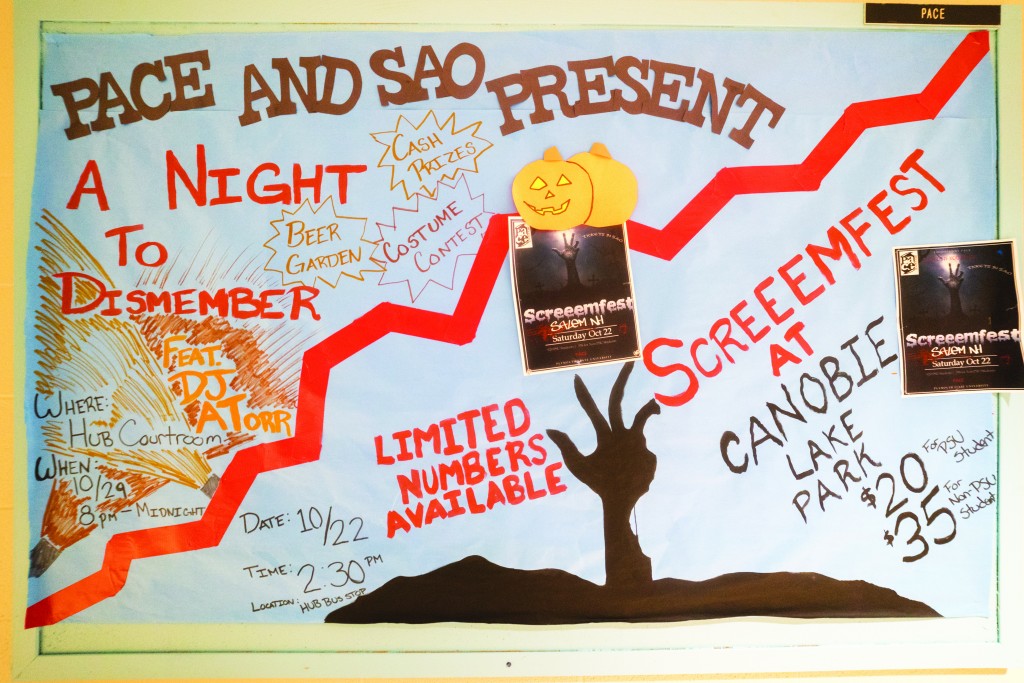 PACE
PACE AND SAO PRESENT
A NIGHT
TO
DISMEMBER
CASH
PRIZES
BEER
GARDEN
COSTUME
CONTEST
FEAT.
DJ
ATORR
WHERE:
HUB COURTROOM
WHEN:
10/29
8PM-MIDNIGHT
DATE: 10/22
TIME: 2:30PM
LOCATION: HUB BUS STOP
LIMITED
NUMBERS
AVAILABLE
Screeemfest
SALEM NH
Saturday Oct 22
SCREEEMFEST
AT
CANOBIE
LAKE
PARK
$20 FOR PSU
Student
$35 For
Non-PSU
Student
Screeemfest
SALEM NH
Saturday Oct 22